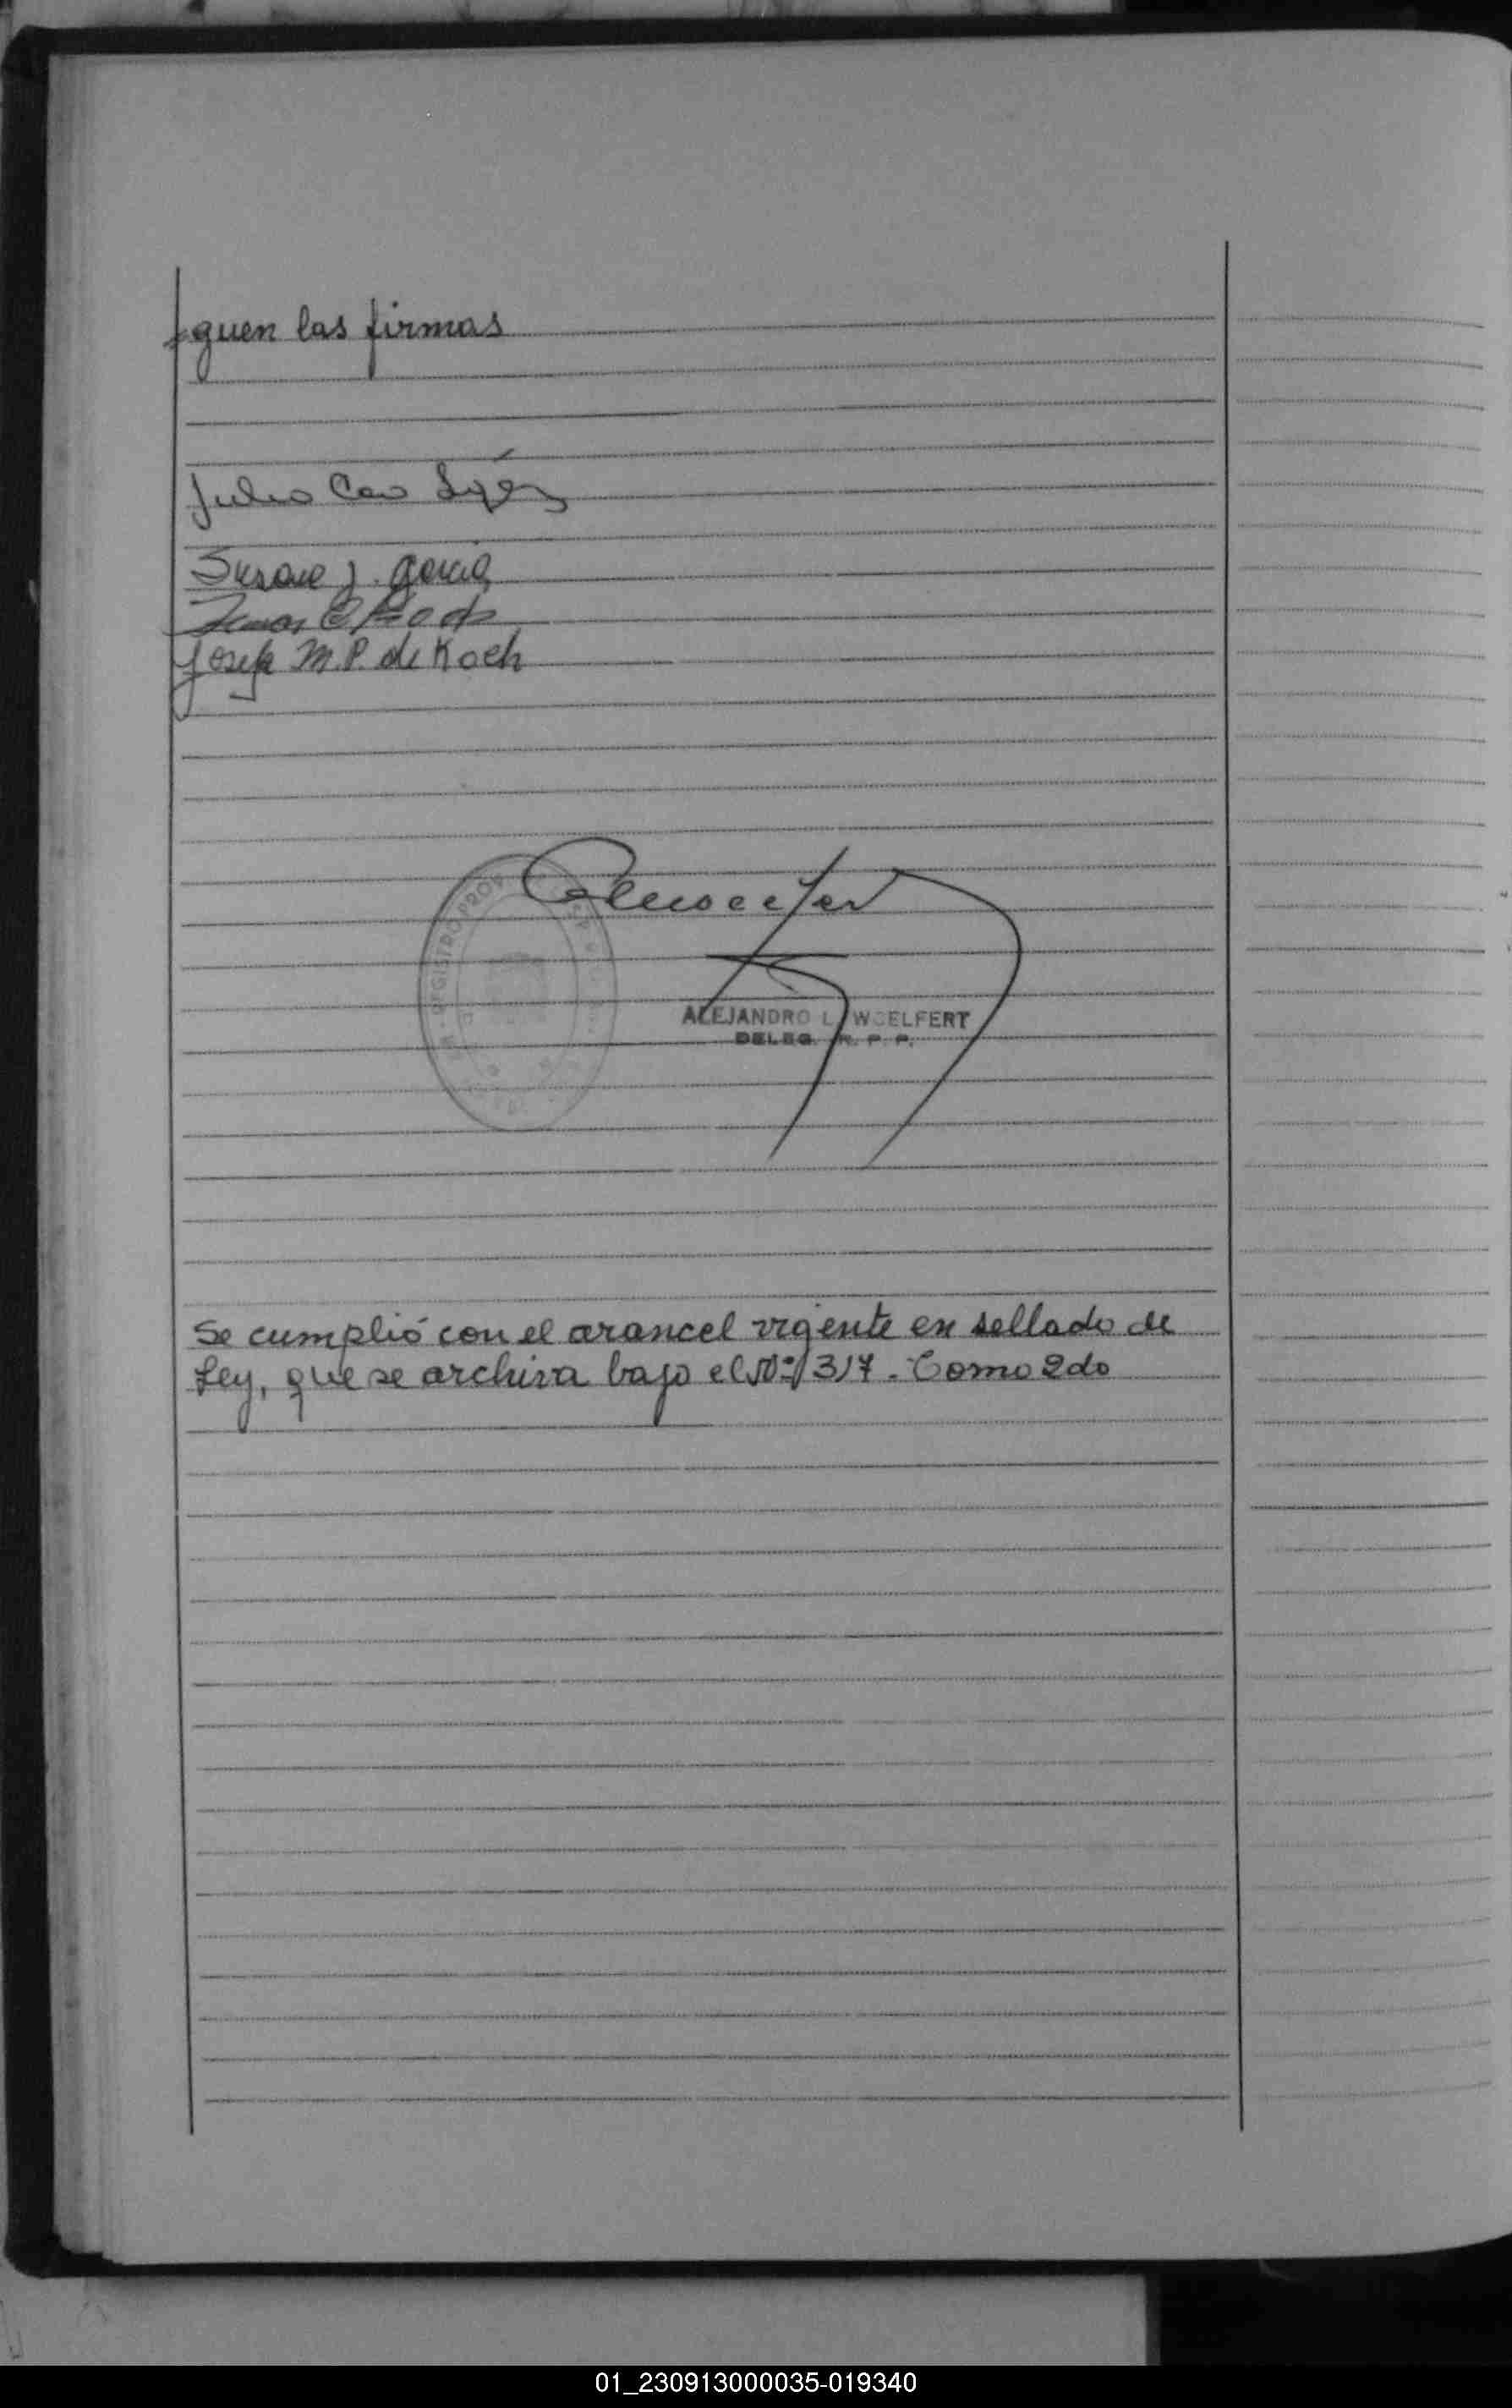 guen las firmas
Julio Cao
Susana J. García
Josefa M. P. de Koch
REGISTRO PROV
ALEJANDRO L. WOELFERT
DELEG. R. P. P.
Se cumplió con el arancel vigente en sellado de
Ley, que se archiva bajo el Nº 317. Tomo 2do
01_230913000035-019340